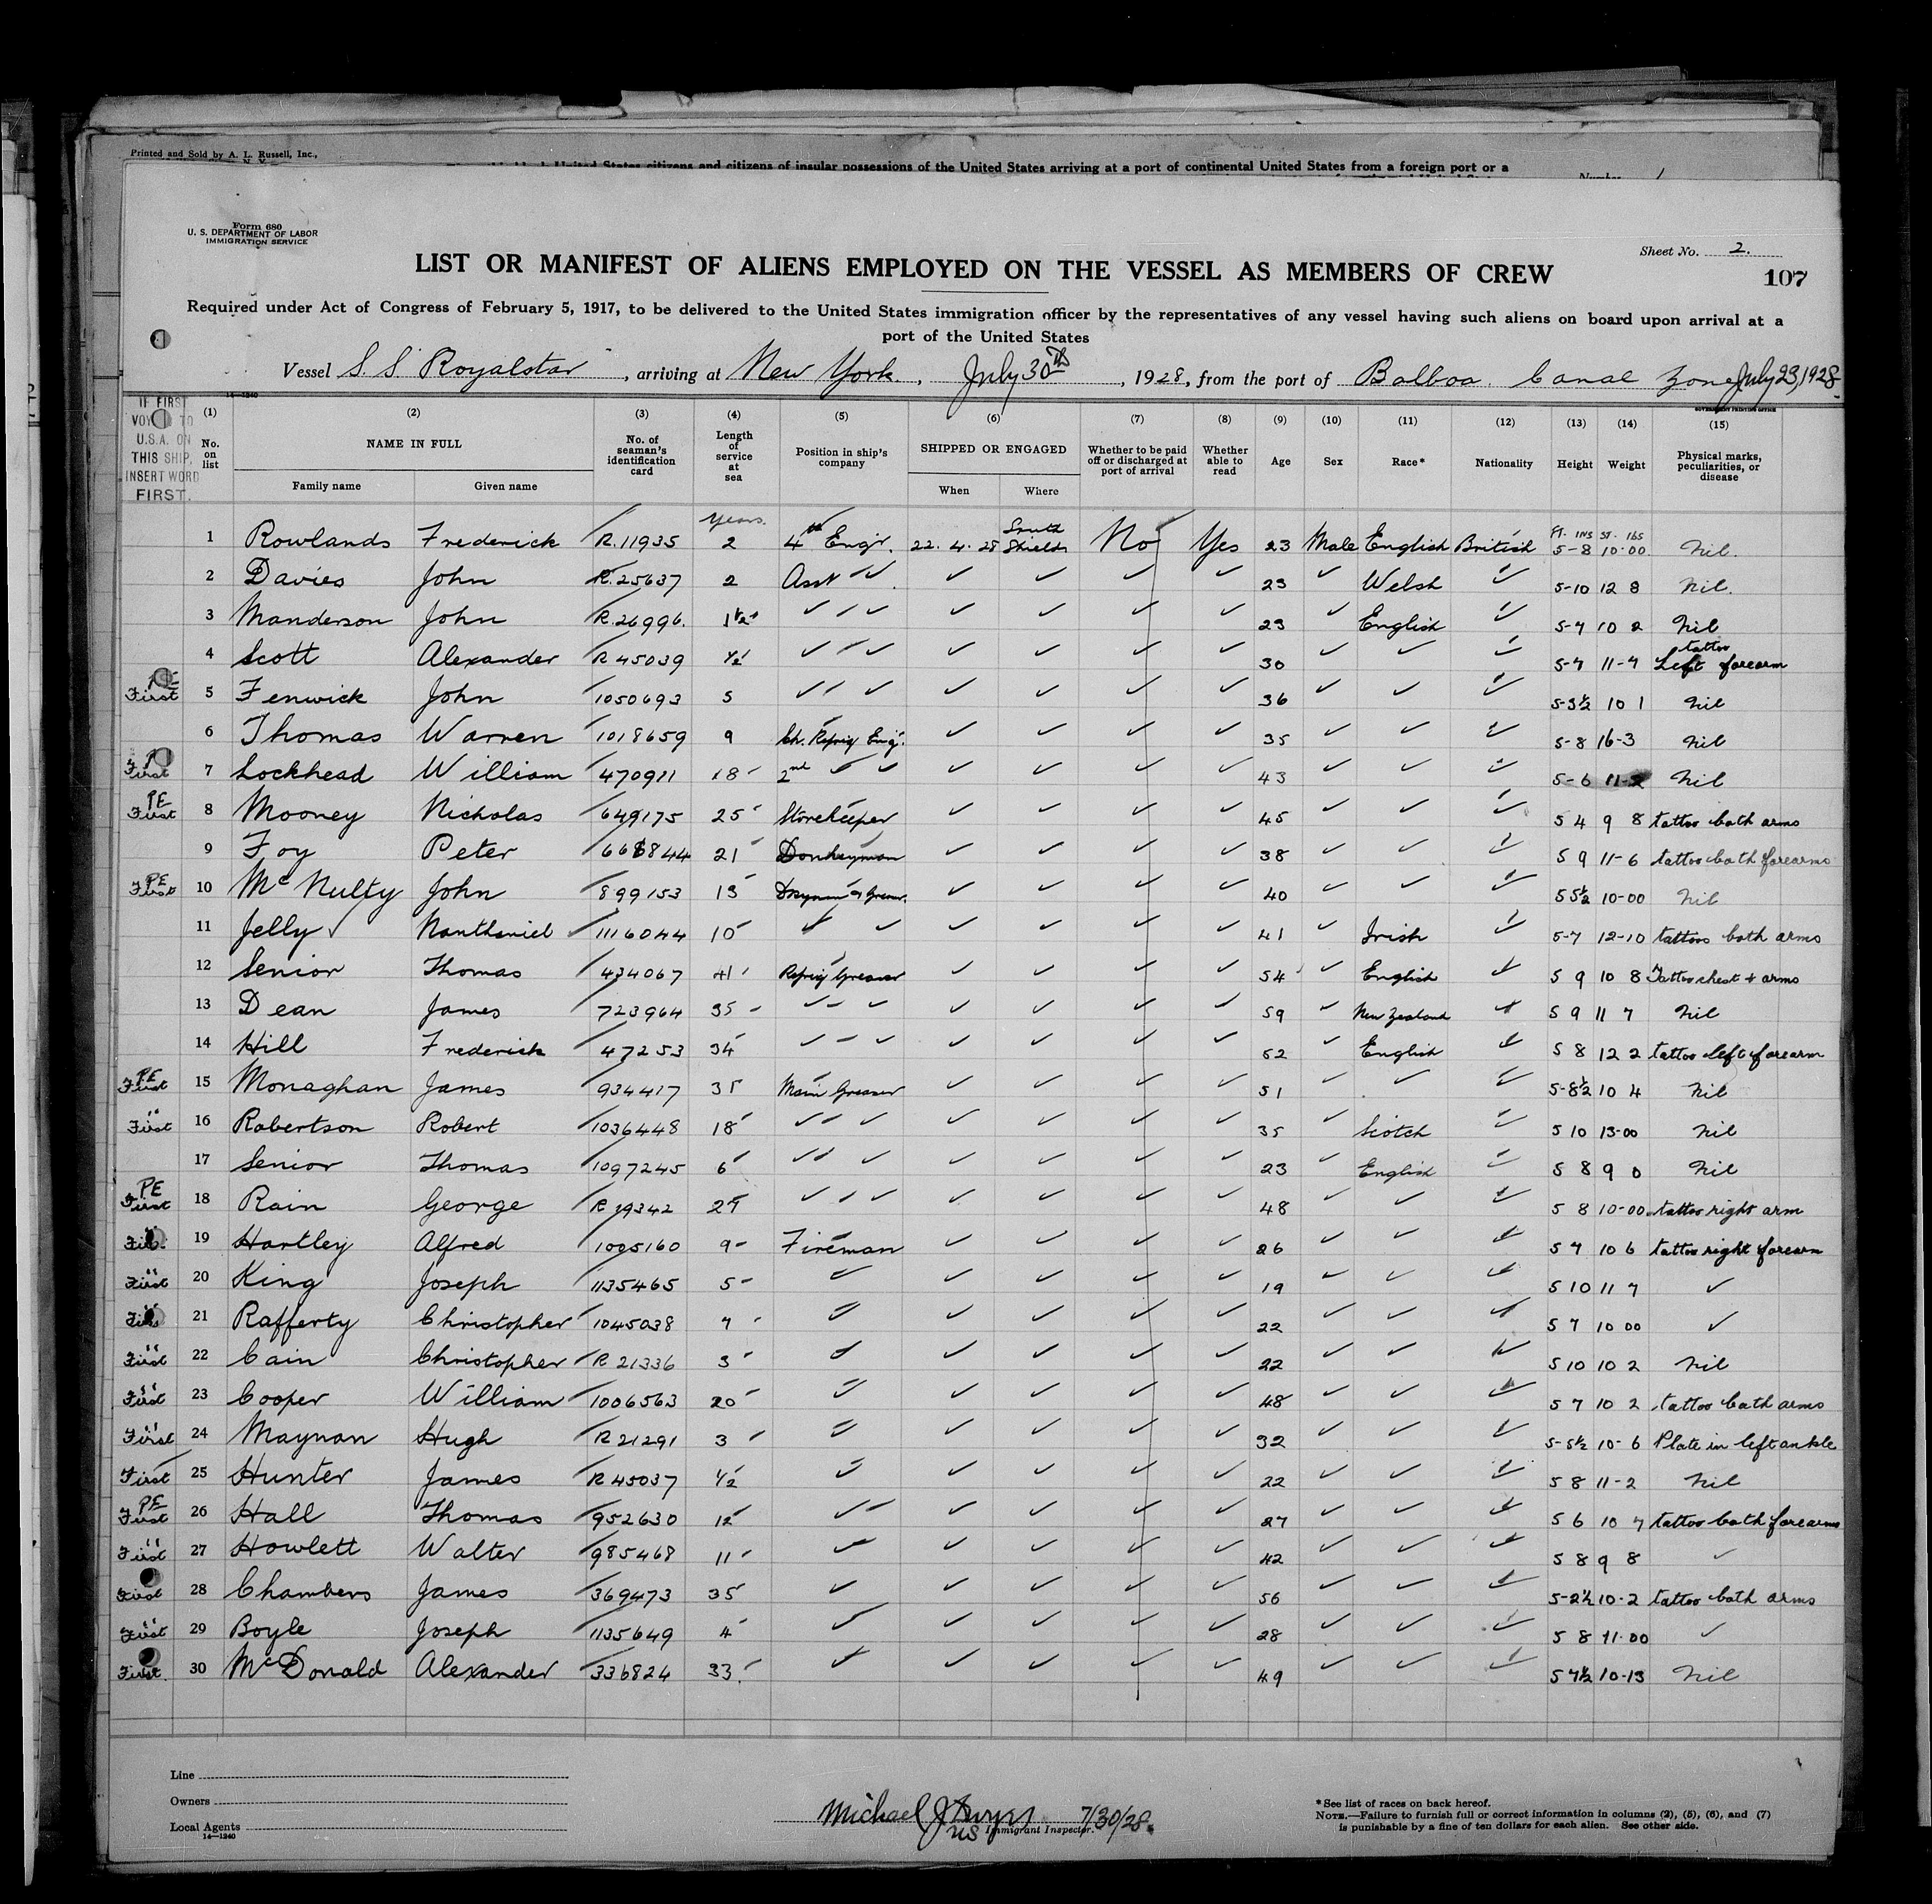 Printed and Sold by A. L. Russell, Inc.,
United States citizens and citizens of insular possessions of the United States arriving at a port of continental United States from a foreign port or a
Form 680
U. S. DEPARTMENT OF LABOR
IMMIGRATION SERVICE
Sheet No. 2.
LIST OR MANIFEST OF ALIENS EMPLOYED ON THE VESSEL AS MEMBERS OF CREW
107
Required under Act of Congress of February 5, 1917, to be delivered to the United States immigration officer by the representatives of any vessel having such aliens on board upon arrival at a
port of the United States
Vessel S. S. Royalstar, arriving at New York, July 30th, 1928, from the port of Balboa. Canal Zone July 23, 1928
14—1240
GOVERNMENT PRINTING OFFICE
IF FIRST VOYAGE TO U.S.A. ON THIS SHIP, INSERT WORD FIRST.
(1) No. on list (2) NAME IN FULL Family name Given name (3) No. of seaman's identification card (4) Length of service at sea (5) Position in ship's company (6) SHIPPED OR ENGAGED When Where (7) Whether to be paid off or discharged at port of arrival (8) Whether able to read (9) Age (10) Sex (11) Race* (12) Nationality (13) Height (14) Weight (15) Physical marks, peculiarities, or disease
years. Ft. ins st. lbs
1 Rowlands Frederick R.11935 2 4th Engr. 22. 4. 28 South Shields No Yes 23 Male English British 5-8 10.00 Nil.
2 Davies John R.25637 2 Asst ✓ ✓ ✓ ✓ ✓ ✓ 23 ✓ Welsh ✓ 5-10 12 8 Nil.
3 Manderson John R.26996. 1½ ✓ ✓ ✓ ✓ ✓ ✓ 23 ✓ English ✓ 5-7 10 2 Nil
4 Scott Alexander R 45039 ½ ✓ ✓ ✓ ✓ ✓ ✓ 30 ✓ ✓ ✓ 5-7 11-7 tattoo Left forearm
First 5 Fenwick John 1050693 5 ✓ ✓ ✓ ✓ ✓ ✓ 36 ✓ ✓ ✓ 5-3½ 10 1 Nil
6 Thomas Warren 1018659 9 Ch. Refrig Eng. ✓ ✓ ✓ ✓ 35 ✓ ✓ ✓ 5-8 16-3 Nil
First 7 Lockhead William 470911 18 2nd ✓ ✓ ✓ ✓ ✓ ✓ 43 ✓ ✓ ✓ 5-6 11-2 Nil
PE First 8 Mooney Nicholas 649175 25 Storekeeper ✓ ✓ ✓ ✓ 45 ✓ ✓ ✓ 5 4 9 8 tattoo both arms
9 Foy Peter 668844 21 Donkeyman ✓ ✓ ✓ ✓ 38 ✓ ✓ ✓ 5 9 11-6 tattoo both forearms
PE First 10 McNulty John 899153 13 ✓ ✓ ✓ ✓ 40 ✓ ✓ ✓ 5 5½ 10-00 Nil
11 Jelly Nanthaniel 1116044 10 ✓ ✓ ✓ ✓ ✓ ✓ 41 ✓ Irish ✓ 5-7 12-10 tattoos both arms
12 Senior Thomas 434067 41 Refrig Greaser ✓ ✓ ✓ ✓ 54 ✓ English ✓ 5 9 10 8 Tattoo chest + arms
13 Dean James 723964 35 ✓ ✓ ✓ ✓ ✓ ✓ 59 ✓ New Zealand ✓ 5 9 11 7 Nil
14 Hill Frederick 47253 34 ✓ ✓ ✓ ✓ ✓ ✓ 52 ✓ English ✓ 5 8 12 2 tattoo left forearm
PE First 15 Monaghan James 934417 31 Main Greaser ✓ ✓ ✓ ✓ 51 ✓ ✓ ✓ 5-8½ 10 4 Nil
" First 16 Robertson Robert 1036448 18 ✓ ✓ ✓ ✓ ✓ ✓ 35 ✓ Scotch ✓ 5 10 13-00 Nil
17 Senior Thomas 1097245 6 ✓ ✓ ✓ ✓ ✓ ✓ 23 ✓ English ✓ 5 8 9 0 Nil
PE First 18 Rain George R 19342 29 ✓ ✓ ✓ ✓ ✓ ✓ 48 ✓ ✓ ✓ 5 8 10-00 tattoo right arm
19 Hartley Alfred 1005160 9 Fireman ✓ ✓ ✓ ✓ 26 ✓ ✓ ✓ 5 7 10 6 tattoo right forearm
" First 20 King Joseph 1135465 5 ✓ ✓ ✓ ✓ ✓ 19 ✓ ✓ ✓ 5 10 11 7 ✓
" 21 Rafferty Christopher 1045038 7 ✓ ✓ ✓ ✓ ✓ 22 ✓ ✓ ✓ 5 7 10 00 ✓
" First 22 Cain Christopher R 21336 3 ✓ ✓ ✓ ✓ ✓ 22 ✓ ✓ ✓ 5 10 10 2 Nil
" First 23 Cooper William 1006563 20 ✓ ✓ ✓ ✓ ✓ 48 ✓ ✓ ✓ 5 7 10 2 tattoo both arms
" First 24 Maynan Hugh R 21291 3 ✓ ✓ ✓ ✓ ✓ 32 ✓ ✓ ✓ 5-5½ 10-6 Plate in left ankle
First 25 Hunter James R 45037 ½ ✓ ✓ ✓ ✓ ✓ 22 ✓ ✓ ✓ 5 8 11-2 Nil
PE First 26 Hall Thomas 952630 12 ✓ ✓ ✓ ✓ ✓ 27 ✓ ✓ ✓ 5 6 10 7 tattoo both forearms
" First 27 Howlett Walter 985468 11 ✓ ✓ ✓ ✓ ✓ 42 ✓ ✓ ✓ 5 8 9 8 ✓
First 28 Chambers James 369473 35 ✓ ✓ ✓ ✓ ✓ 56 ✓ ✓ ✓ 5-2½ 10-2 tattoo both arms
" First 29 Boyle Joseph 1135649 4 ✓ ✓ ✓ ✓ ✓ 28 ✓ ✓ ✓ 5 8 11-00 ✓
First 30 McDonald Alexander 336824 33 ✓ ✓ ✓ ✓ ✓ 49 ✓ ✓ ✓ 5 7½ 10-13 Nil
Line
Owners
Local Agents
14—1240
Michael J 7/30/28.
US Immigrant Inspector.
*See list of races on back hereof.
NOTE.—Failure to furnish full or correct information in columns (2), (5), (6), and (7)
is punishable by a fine of ten dollars for each alien. See other side.